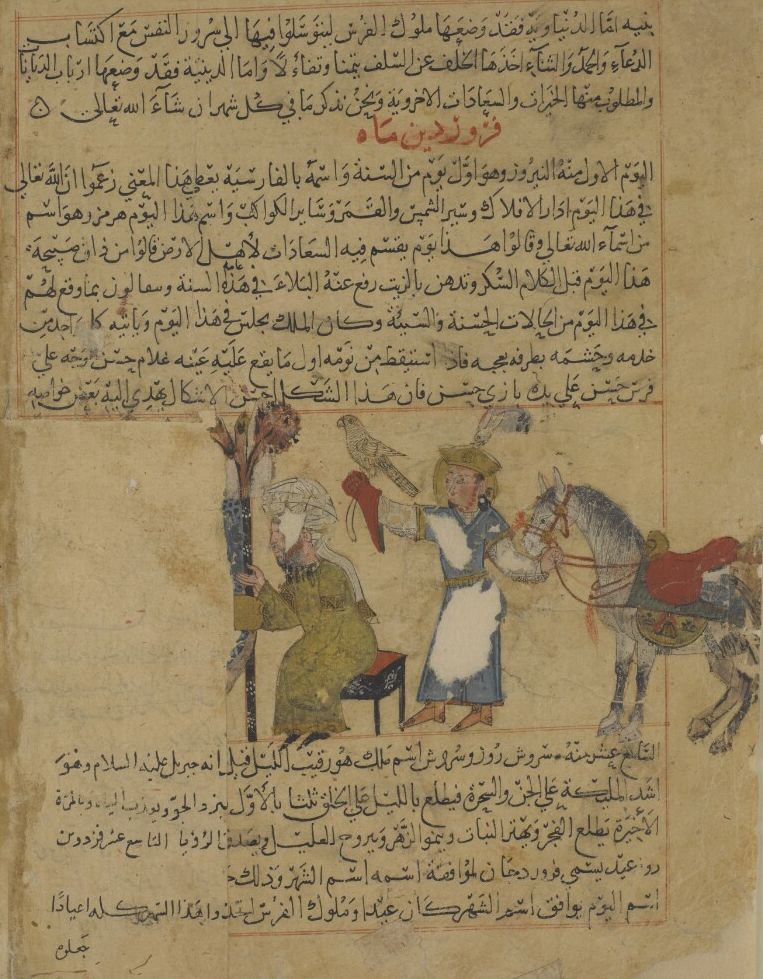 دينيه اما الدنياويه فقد وضعها ملوك الفرس ليتوسلوا فيها الى سرور النفس مع اكتساب
الدعاء والحمد والثناء اخذها الخلف عن السلف تيمنا وتفاءلا واما الدينية فقد وضعها ارباب الديانات
والمطلوب منها الخيرات والسعادات الاخروية ونحن نذكر ما في كل شهر ان شاء الله تعالى
فروردين ماه
اليوم الاول منه النيروز وهو اول يوم من السنة واسمه بالفارسية يعطي هذا المعنى زعموا ان الله تعالى
في هذا اليوم ادار الافلاك وسير الشمس والقمر وساير الكواكب واسم هذا اليوم هرمز وهو اسم
من اسماء الله تعالى وقالوا هذا يوم يقسم فيه السعادات لاهل الارض قالوا من ذاق صبيحة
هذا اليوم قبل الكلام السكر وتدهن بالزيت رفع عنه البلاء في هذه السنة ويتفالون بما وقع لهم
في هذا اليوم من الحالات الحسنة والسيئة وكان الملك يجلس في هذا اليوم وياتيه كل واحد من
خدمه وحشمه بطرفه فاذا استيقظ من نومه اول ما يقع عليه عينه غلام حسن الوجه على
فرس حسن على يده بازي حسن فان هذا الشكل احسن الاشكال يهدي اليه بعض خواصه
التاسع عشر منه سروش روز وسروش اسم ملك هو رقيب الليل قيل انه جبريل عليه السلام وهو
اشد المليكة على الجن والسحرة فيطلع بالليل على الخلق ثلثا بالاول يبرد الجو ويعذب المياه وبالمرة
الاخيرة يطلع الفجر ويهتز النبات وينمو الزهر ويروح العليل ويصدق الرؤيا التاسع عشر فروردين
روز عيد يسمى فروردجان لموافقة اسمه اسم الشهر وذلك
اسم اليوم يوافق اسم الشهر كان عيدا وملوك الفرس اتخذوا هذا الشهر كله اعيادا